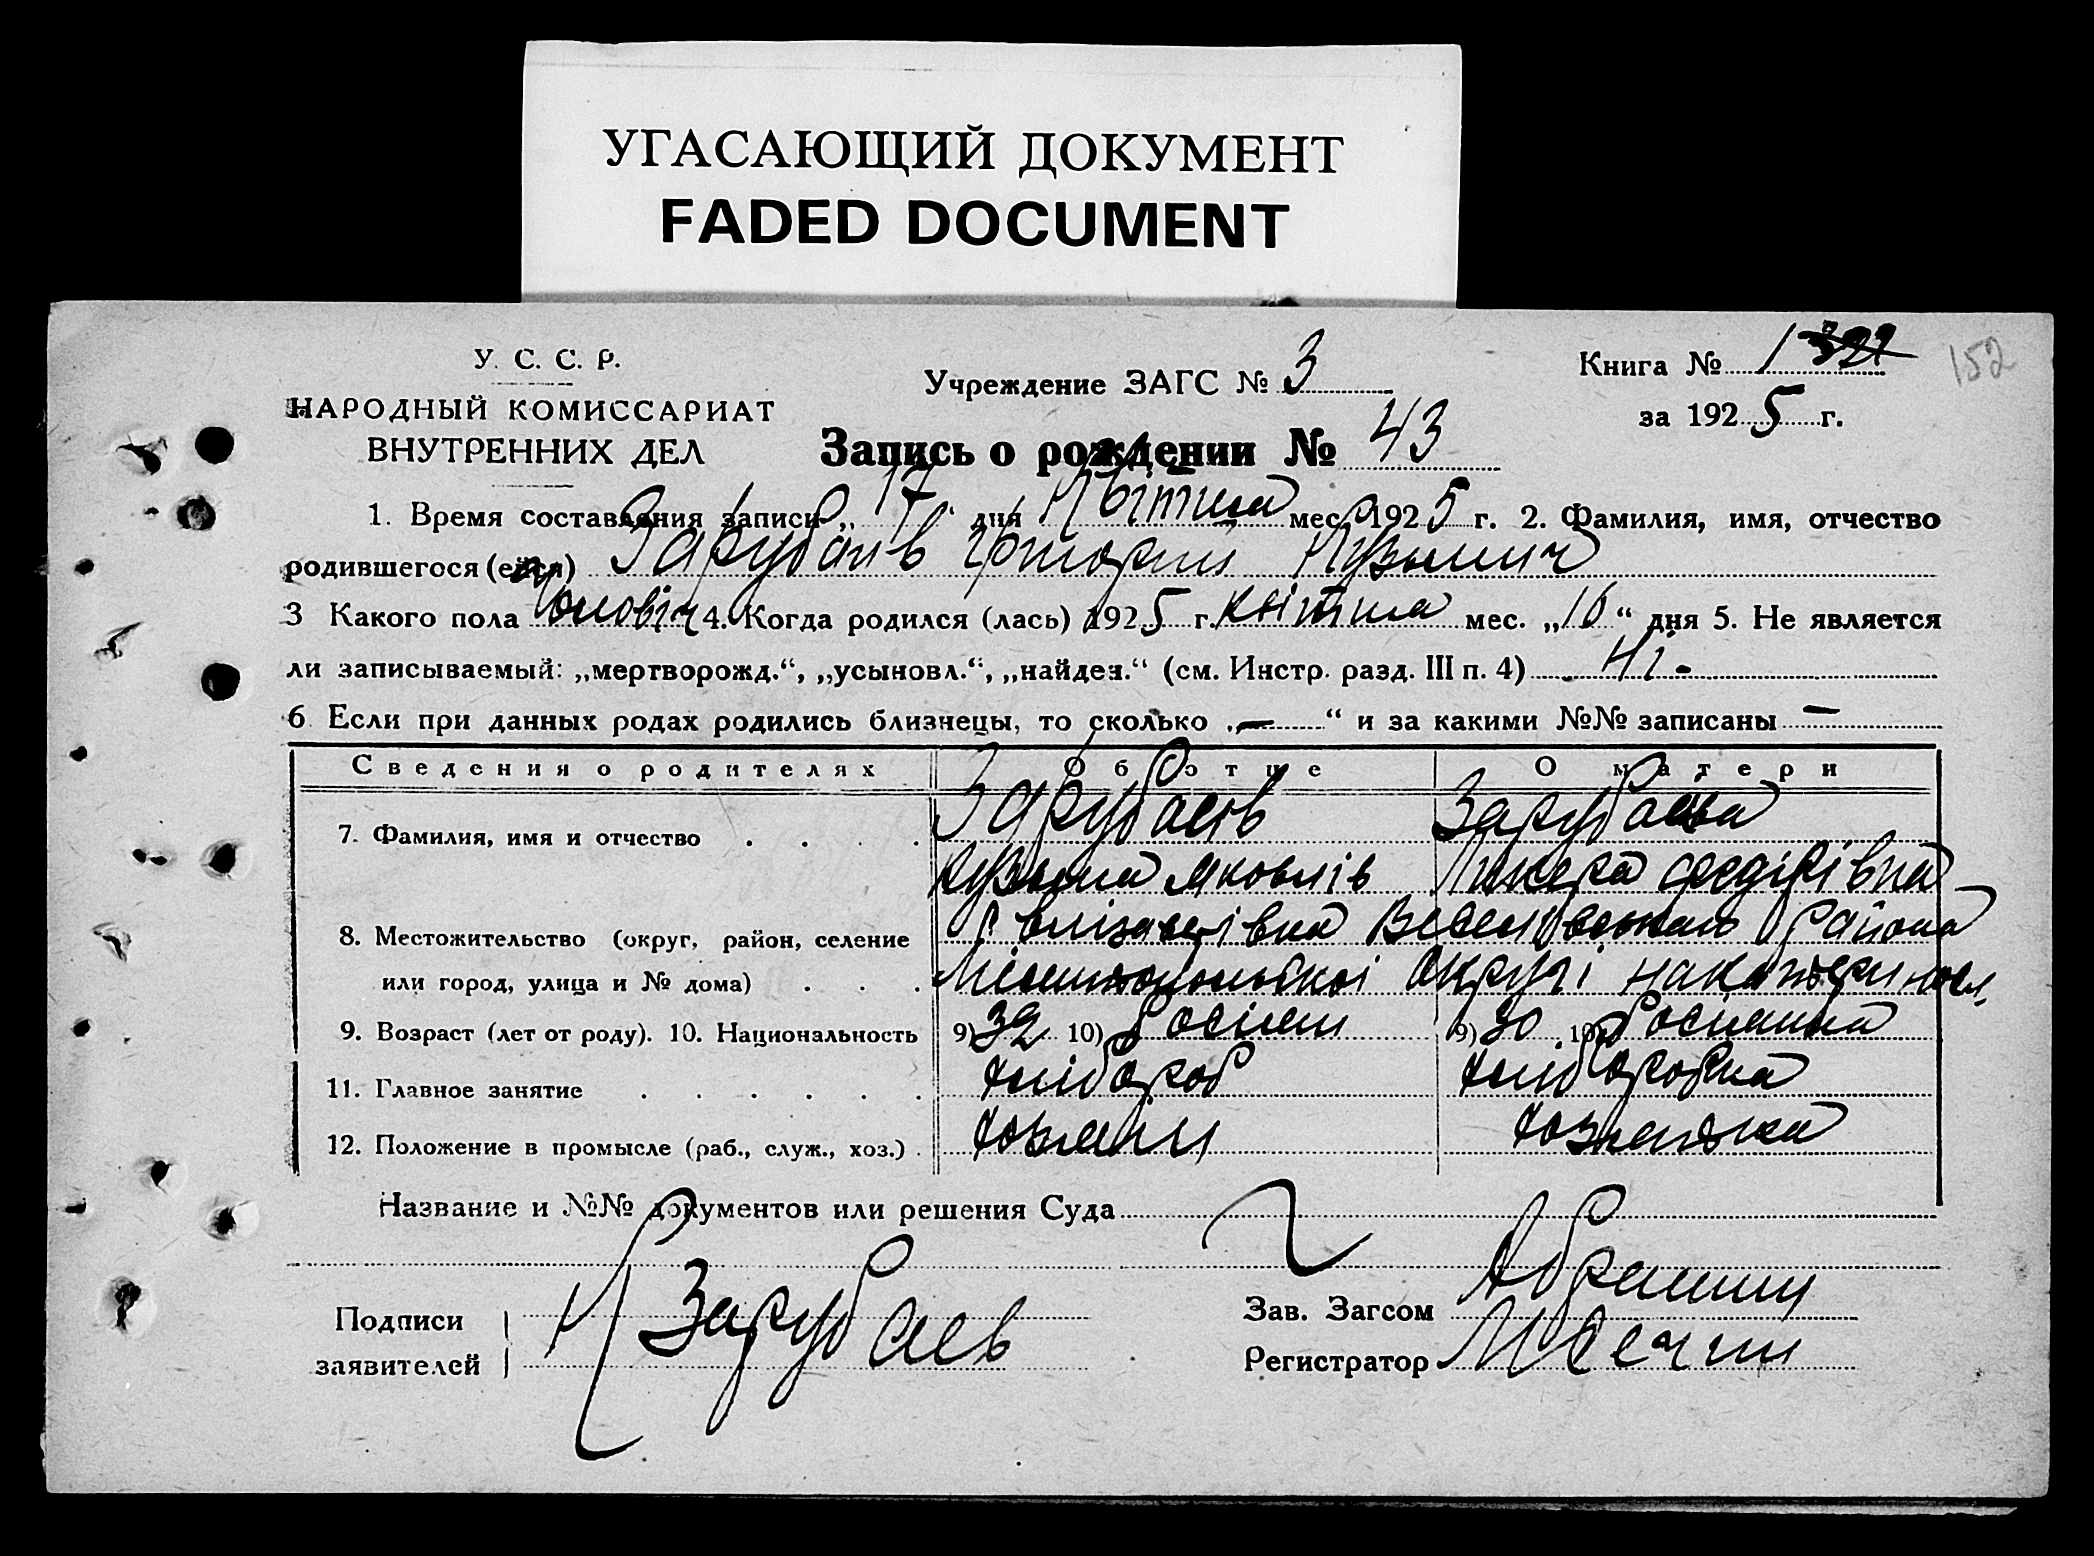 УГАСАЮЩИЙ ДОКУМЕНТ
FADED DOCUMENT
У. С. С. Р.
НАРОДНЫЙ КОМИССАРИАТ
ВНУТРЕННИХ ДЕЛ
Учреждение ЗАГС № 3
Книга № 1
152
за 1925 г.
Запись о рождении № 43
1. Время составления записи „17" дня Квітня мес. 1925 г. 2. Фамилия, имя, отчество
родившегося (ейся) Зарубаів Григорий Кузьмич
3 Какого пола Чоловіч 4. Когда родился (лась) 1925 г. квітня мес. „16" дня 5. Не является
ли записываемый: „мертворожд.", „усыновл.", „найден." (см. Инстр. разд. III п. 4) Ні -
6 Если при данных родах родились близнецы, то сколько „—" и за какими №№ записаны —
Сведения о родителях Об отце О матери
7. Фамилия, имя и отчество Зарубаєв Зарубаєва
Кузьма Яковлів Лукера Федорівна
8. Местожительство (округ, район, селение Єлізаветівка Веселівського района
или город, улица и № дома) Мелитопольської округи
9. Возраст (лет от роду). 10. Национальность 9) 32 10) Росіянин 9) 30 10) Росиянка
11. Главное занятие хлібороб хліборобка
12. Положение в промысле (раб., служ., хоз.) хозяїн хозяйка
Название и №№ документов или решения Суда
Подписи
заявителей
К Зарубаев
Зав. Загсом
Регистратор